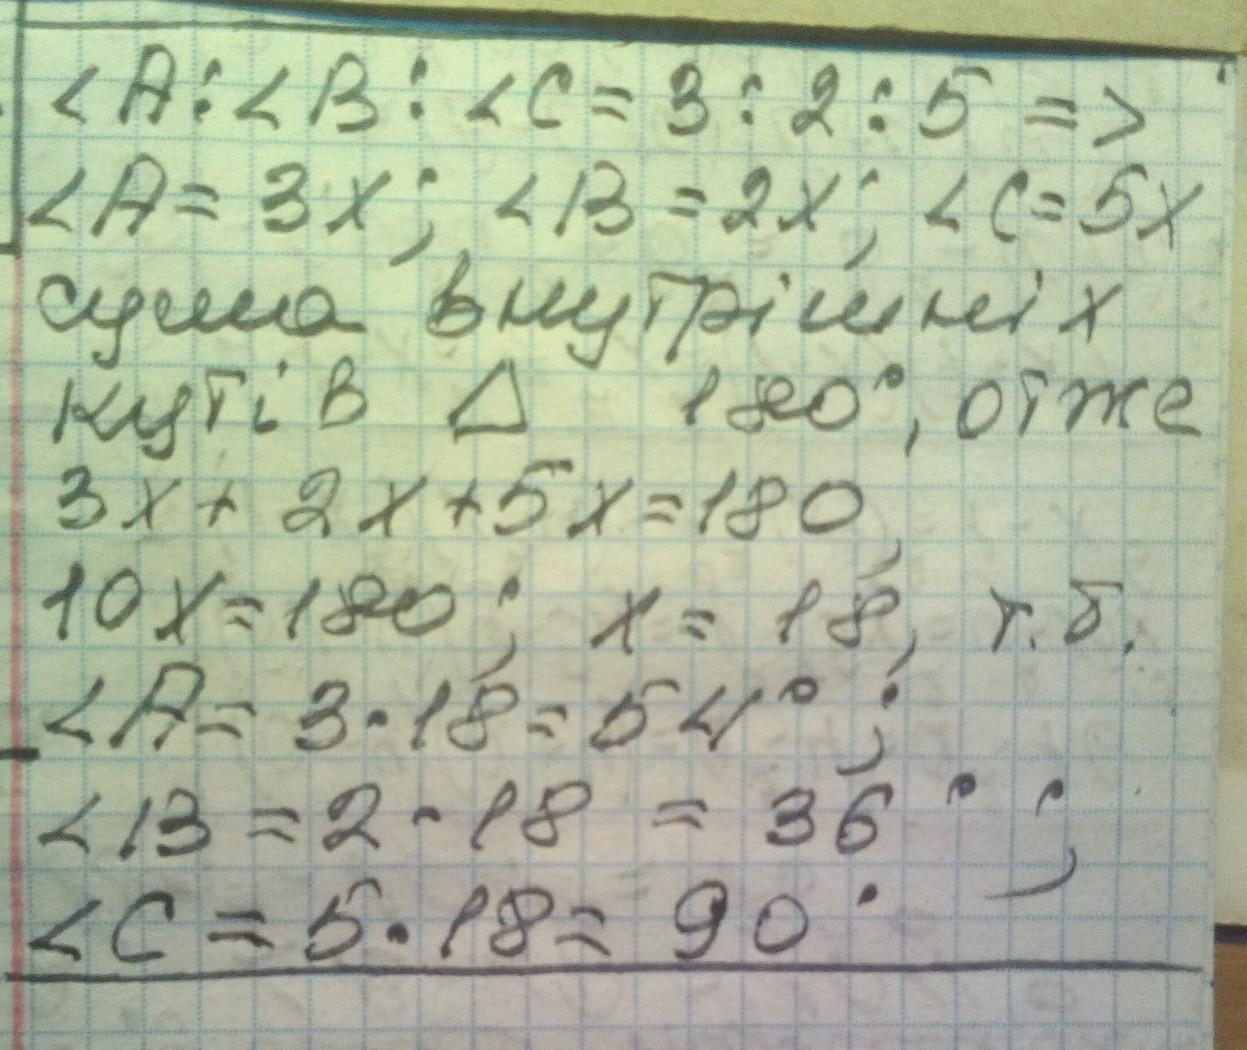 ∠A:∠B:∠C=3:2:5 =>
∠A=3x; ∠B=2x; ∠C=5x
сума внутрішніх
кутів Δ 180°, отже
3x+2x+5x=180,
10x=180; x=18, т.б.
∠A=3·18=54°;
∠B=2·18=36°;
∠C=5·18=90°